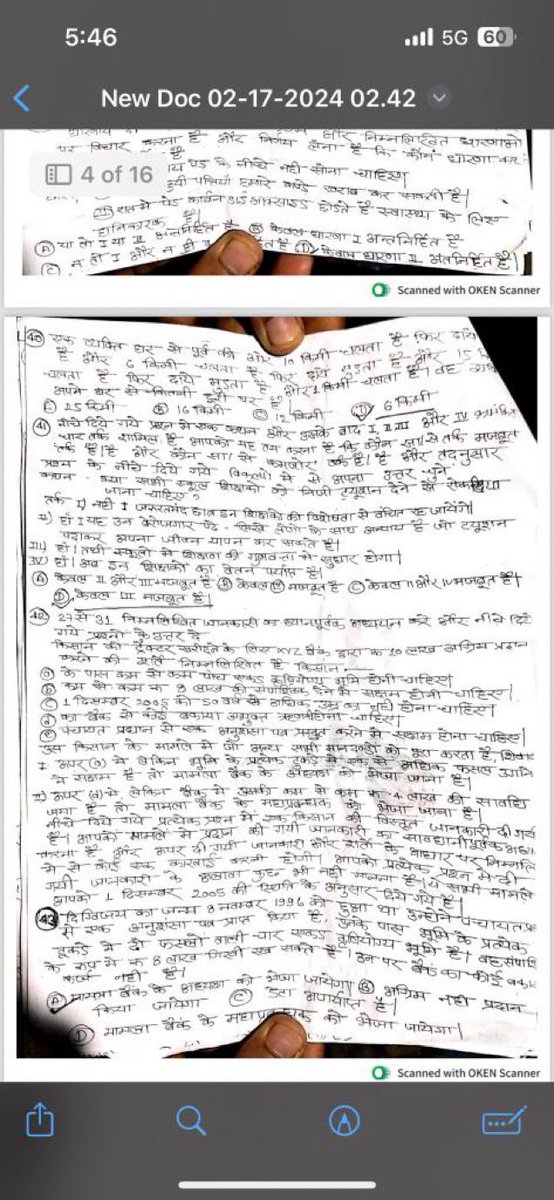 5:46
5G 60
New Doc 02-17-2024 02.42
पर विचार करना है और निर्णय लेना है कि कौन धारणा
4 of 16
पेड के नीचे नही सोना चाहिए।
पक्षियां हमारे कपडे खराब कर सकती है।
हानिकारक है।
(A) या तो I या II अन्तर्निहित है (B) केवल धारणा I अन्तर्निहित है
(C) न तो I और न ही (D) केवल धारणा II अंतर्निहित है।
Scanned with OKEN Scanner
(40) एक व्यक्ति घर से पूर्व की ओर 10 किमी चलता है फिर दायें
है और 6 किमी चलता है फिर दायें मुडता है और 15
चलता है फिर दायें मुडता है और किमी चलता है। वह
अपने घर से कितनी दूरी पर है।
(A) 25 किमी (B) 16 किमी (C) 12 किमी (D) 6 किमी
(41) नीचे दिये गये प्रश्न में एक कथन और उसके बाद I, II, III और IV
चार तर्क शामिल है आपको यह तय करना है कि कौन सा/से तर्क मजबूत
तर्क है/हैं और कौन सा/से कमजोर तर्क है/हैं और तदनुसार
प्रश्न के नीचे दिये गये विकल्पो में से अपना उत्तर चुने
कथन - क्या सभी स्कूल शिक्षको को निजी ट्यूशन देने से
जाना चाहिए?
तर्क I) नही। जरूरतमंद छात्र इन शिक्षको की विशेषता से वंचित रह जायेगे।
II) हाँ। यह उन बेरोजगार पढे-लिखे लोगो के साथ अन्याय है जो ट्यूशन
पढाकर अपना जीवन यापन कर सकते है।
III) हाँ। तभी स्कूलो में शिक्षण की गुणवत्ता में सुधार होगा।
IV) हाँ। अब इन शिक्षको का वेतन पर्याप्त है।
(A) केवल II और III मजबूत है (B) केवल मजबूत है (C) केवल II और IV मजबूत है।
(D) केवल III मजबूत है।
(42) 27 से 31 निम्नलिखित जानकारी का ध्यानपूर्वक अध्ययन करे और नीचे दिये
गये प्रश्नो के उत्तर दे
किसान को ट्रैक्टर खरीदने के लिए XYZ बैंक द्वारा रू 10 लाख अग्रिम प्रदान
करने की शर्ते निम्नलिखित है किसान—
(a) के पास कम से कम पांच एकड कृषियोग्य भूमि होनी चाहिए।
(b) कम से कम रू 8 लाख की देने में सक्षम होनी चाहिए।
(c) 1 दिसम्बर 2005 को 50 वर्ष से अधिक उम्र का नही होना चाहिए।
(d) का बैंक से कोई बकाया नहोना चाहिए।
(e) पंचायत प्रधान से एक अनुशंसा पत्र प्रस्तुत करने में सक्षम होना चाहिए।
उस किसान के मामले में जो अन्य सभी मानदण्डो को पूरा करता है,
I. ऊपर (a) में लेकिन भूमि के प्रत्येक टुकडे में एक से अधिक फसल उगाने
में सक्षम है तो मामला बैंक के अध्यक्ष को भेजा जाना है।
II) ऊपर (b) में लेकिन बैंक में उसकी कम से कम रू 4 लाख की सावधि
जमा है तो मामला बैंक के महाप्रबन्धक को भेजा जाना है।
नीचे दिये गये प्रत्येक प्रश्न में एक किसान की विस्तृत जानकारी दी गई
है। आपको मामले में प्रदान की गयी जानकारी का सावधानीपूर्वक
करना है और ऊपर दी गयी जानकारी और शर्तो के आधार पर
में से कोई एक कारवाई करनी होगी। आपको प्रत्येक प्रश्न में दी
गयी जानकारी के अलावा कुछ भी नही मानना है। ये सभी मामले
आपको 1 दिसम्बर 2005 की स्थिति के अनुसार दिये गये है
(43) दिग्विजय का जन्म 8 नवम्बर 1996 को हुआ था उन्होने पंचायत
से एक अनुशंसा पत्र प्राप्त किया है, उनके पास भूमि के प्रत्येक
टूकडे में दो फसलो वाली चार एकड कृषियोग्य भूमि है। वह
के रूप में रू 8 लाख गिरवी रख सकते है। उन पर बैंक का कोई
कर्ज नही है।
(A) मामला बैंक के अध्यक्ष को भेजा जायेगा। (B) अग्रिम नही प्रदान
किया जायेगा (C) डेटा अपर्याप्त है।
(D) मामला बैंक के को भेजा जायेगा।
Scanned with OKEN Scanner